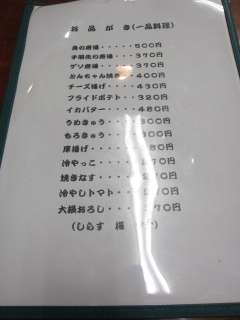 お品がき(一品料理)
鳥の唐揚・・・・・500円
手羽先の唐揚・・・370円
ゲソ唐揚・・・・・370円
とんちゃん焼き・・400円
チーズ揚げ・・・・430円
フライドポテト・・320円
イカバター・・・・480円
うめきゅう・・・・300円
もろきゅう・・・・300円
厚揚げ・・・・・・380円
冷やっこ・・・・・270円
焼きなす・・・・・270円
冷やしトマト・・・270円
大根おろし・・・・270円
(しらす